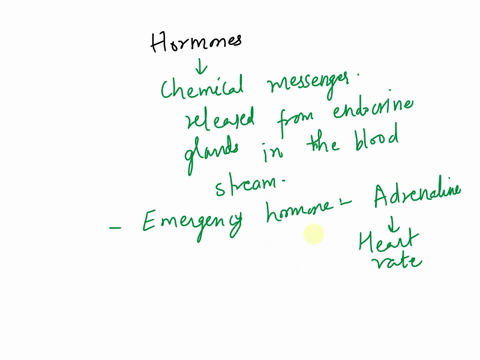 Hormones
↓
Chemical messenger.
released from endocrine
glands in the blood
stream.
- Emergency hormone:- Adrenaline
↓
Heart
rate